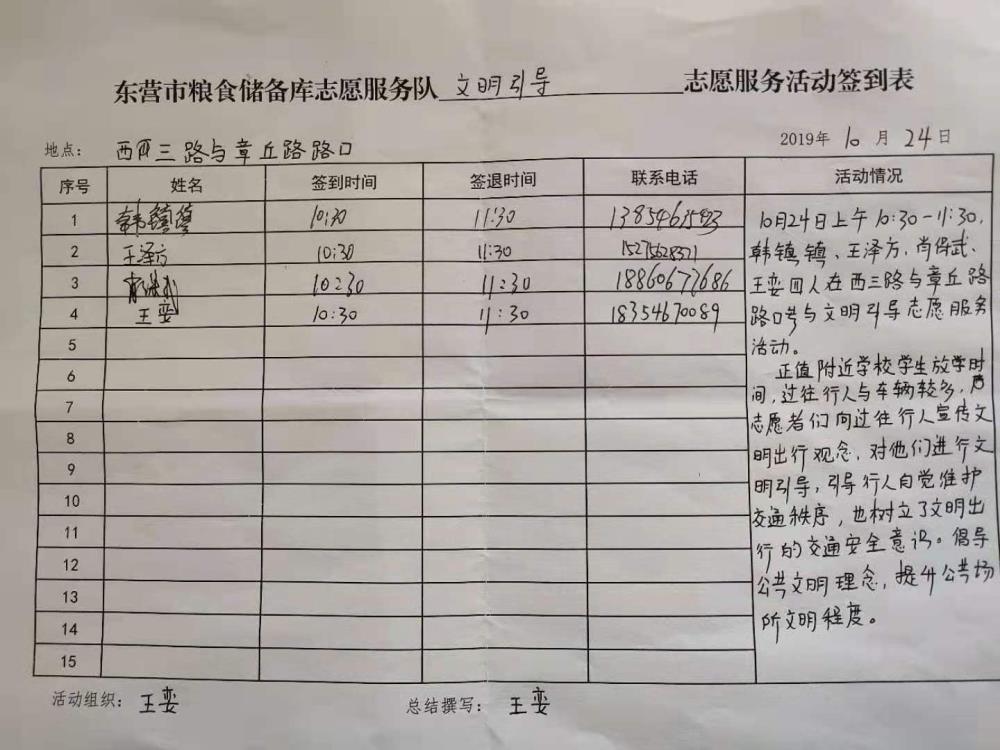 东营市粮食储备库志愿服务队 文明引导 志愿服务活动签到表
地点: 西三路与章丘路路口 2019年 10 月 24 日
序号 姓名 签到时间 签退时间 联系电话 活动情况
1 韩镇镇 10:30 11:30
2 王泽方 10:30 11:30 15275628371
3 10:30 11:30 18860677686
4 王娈 10:30 11:30 18354670089
5
6
7
8
9
10
11
12
13
14
15
10月24日上午10:30-11:30,
韩镇镇、王泽方、肖保武、
王娈四人在西三路与章丘路
路口参与文明引导志愿服务
活动。
正值附近学校学生放学时
间,过往行人与车辆较多,
志愿者们向过往行人宣传文
明出行观念,对他们进行文
明引导,引导行人自觉维护
交通秩序,也树立了文明出
行的交通安全意识。倡导
公共文明理念,提升公共场
所文明程度。
活动组织: 王娈 总结撰写: 王娈